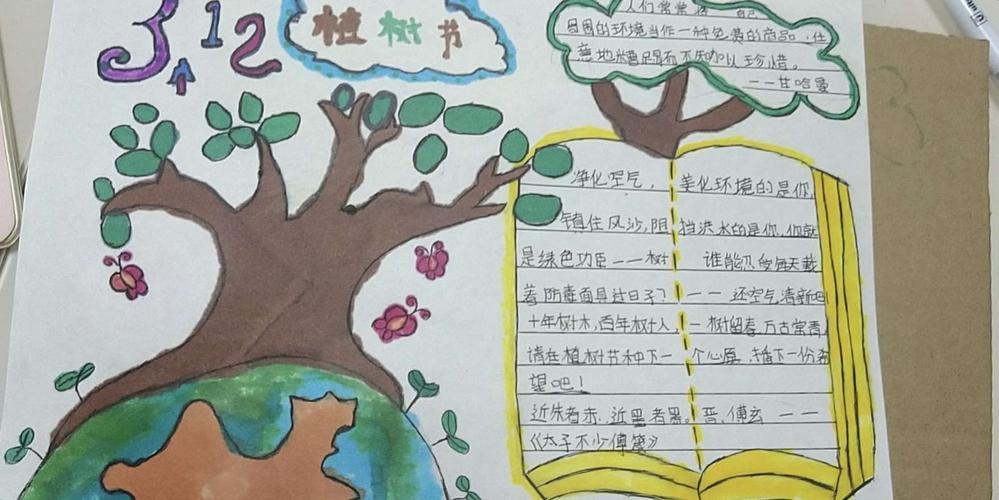 3.12
植树节
人们常常 自己
周围的环境当作一种免费的商品,任
意地糟蹋而不知加以珍惜。
——甘哈曼
净化空气,美化环境的是你,
镇住风沙,阻挡洪水的是你,你就
是绿色功臣——树 谁能忍受每天戴
着防毒面具过日子?——还空气清新吧
十年树木,百年树人,一树留春万古常青
请在植树节种下一个心愿,播下一份希
望吧!
近朱者赤,近墨者黑。晋,傅玄——
《太子不少傅箴》